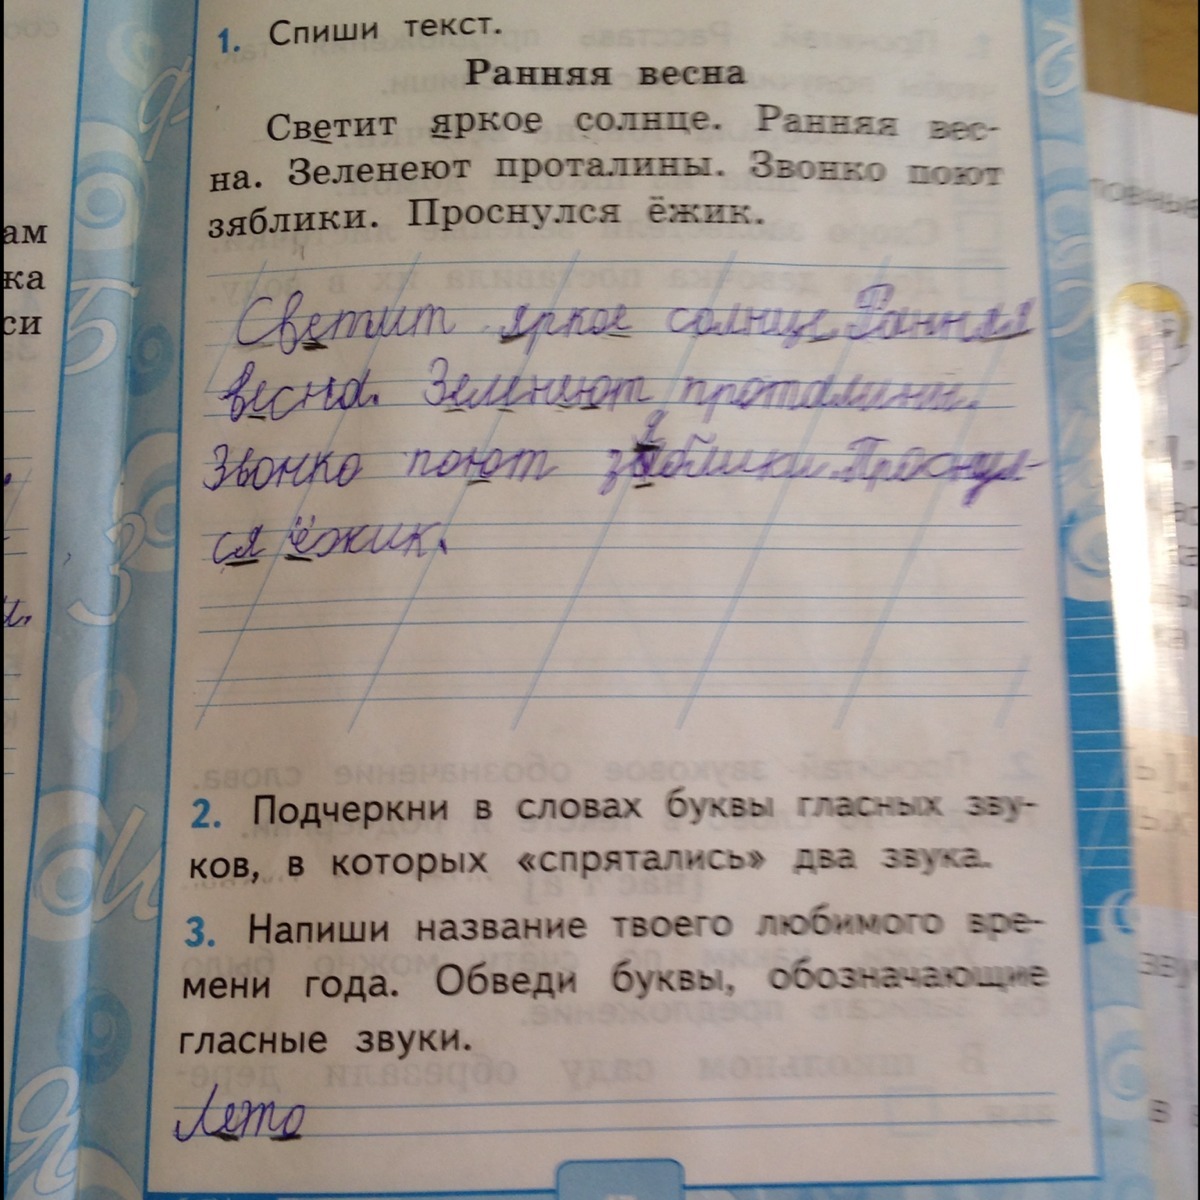 1. Спиши текст.
Ранняя весна
Светит яркое солнце. Ранняя вес-
на. Зеленеют проталины. Звонко поют
зяблики. Проснулся ёжик.
ам
жа
си
Светит яркое солнце. Ранняя
весна. Зеленеют проталины.
Звонко поют зяблики. Проснул-
ся ёжик.
2. Подчеркни в словах буквы гласных зву-
ков, в которых «спрятались» два звука.
3. Напиши название твоего любимого вре-
мени года. Обведи буквы, обозначающие
гласные звуки.
Лето